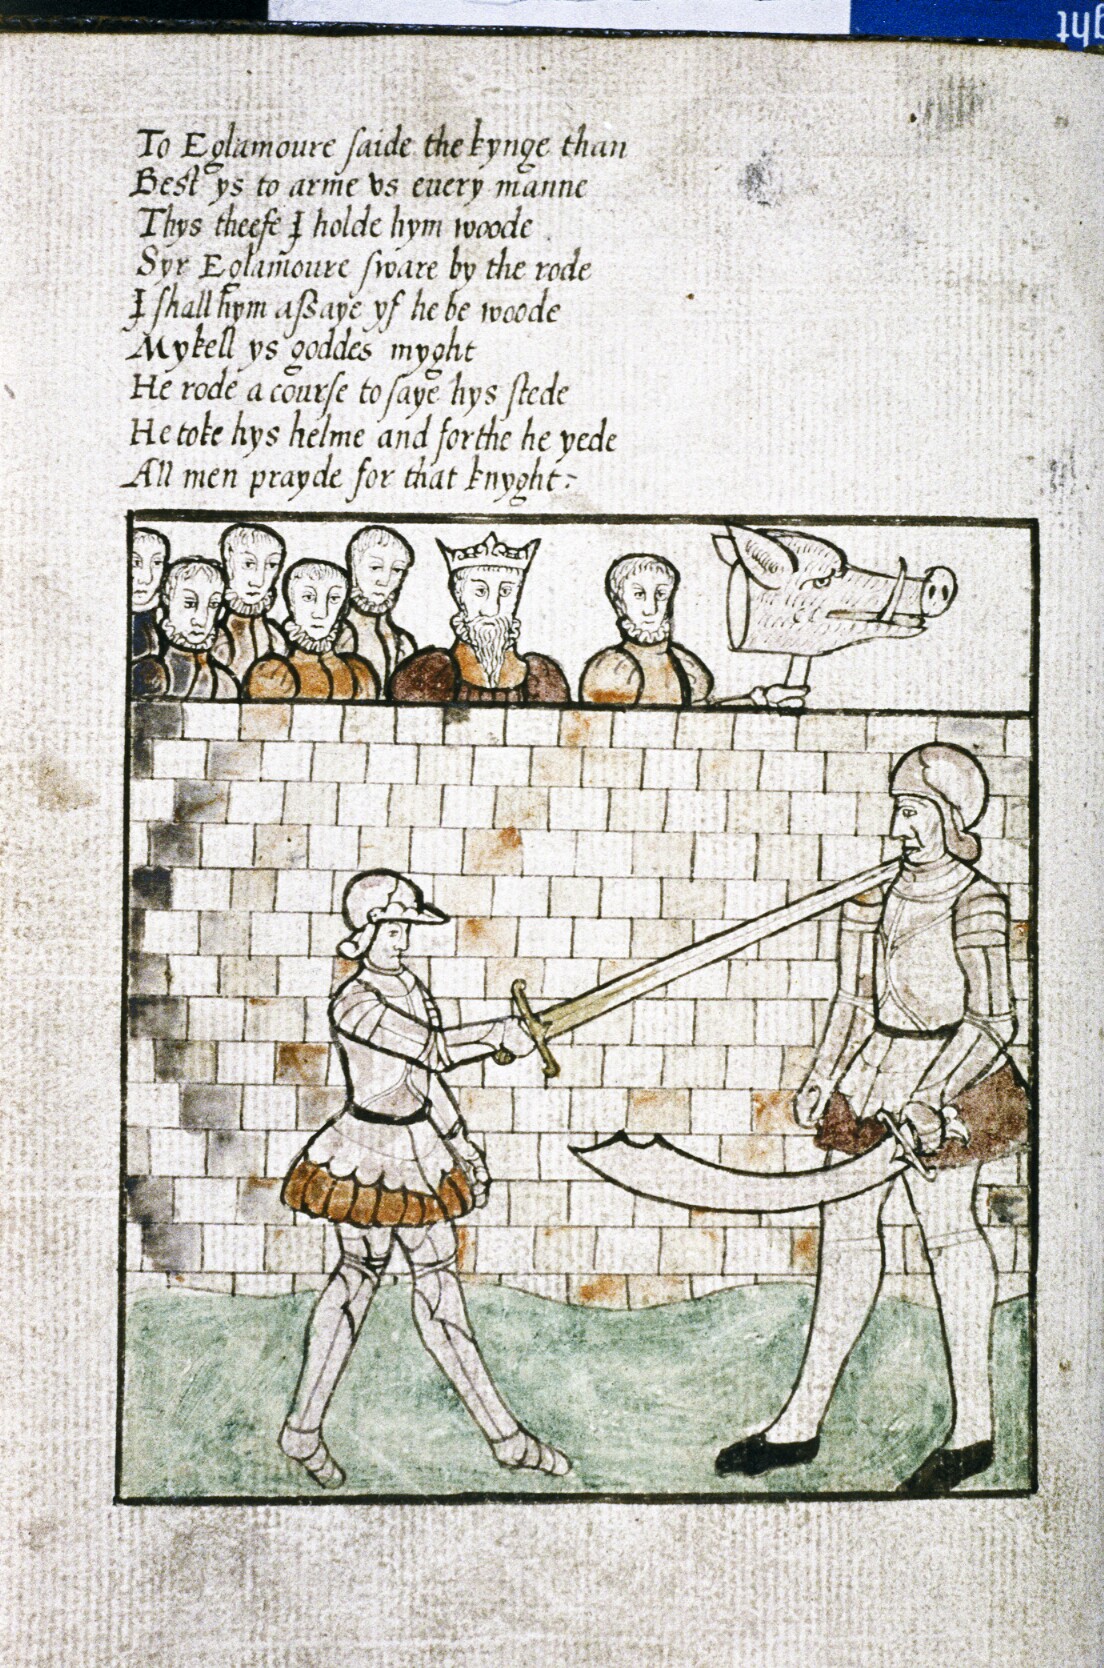 To Eglamoure saide the kynge than
Best ys to arme vs euery manne
Thys theefe I holde hym woode
Syr Eglamoure sware by the rode
I shall hym assaye yf he be woode
Mykell ys goddes myght
He rode a course to saye hys stede
He toke hys helme and forthe he yede
All men prayde for that knyght:
ght